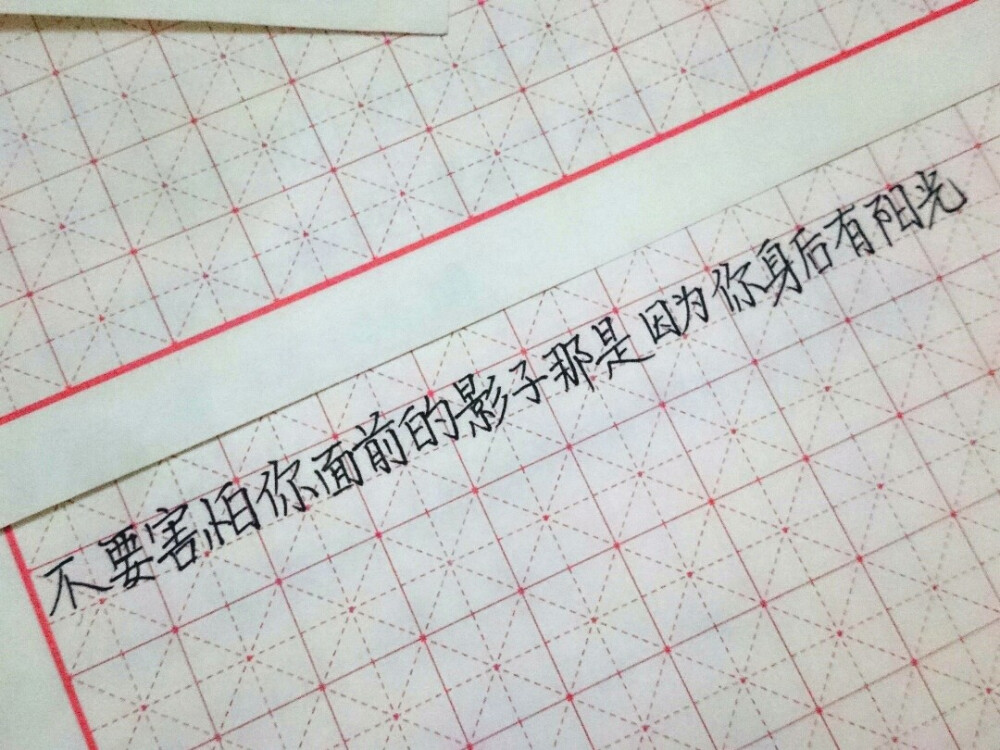 不要害怕你面前的影子那是因为你身后有阳光